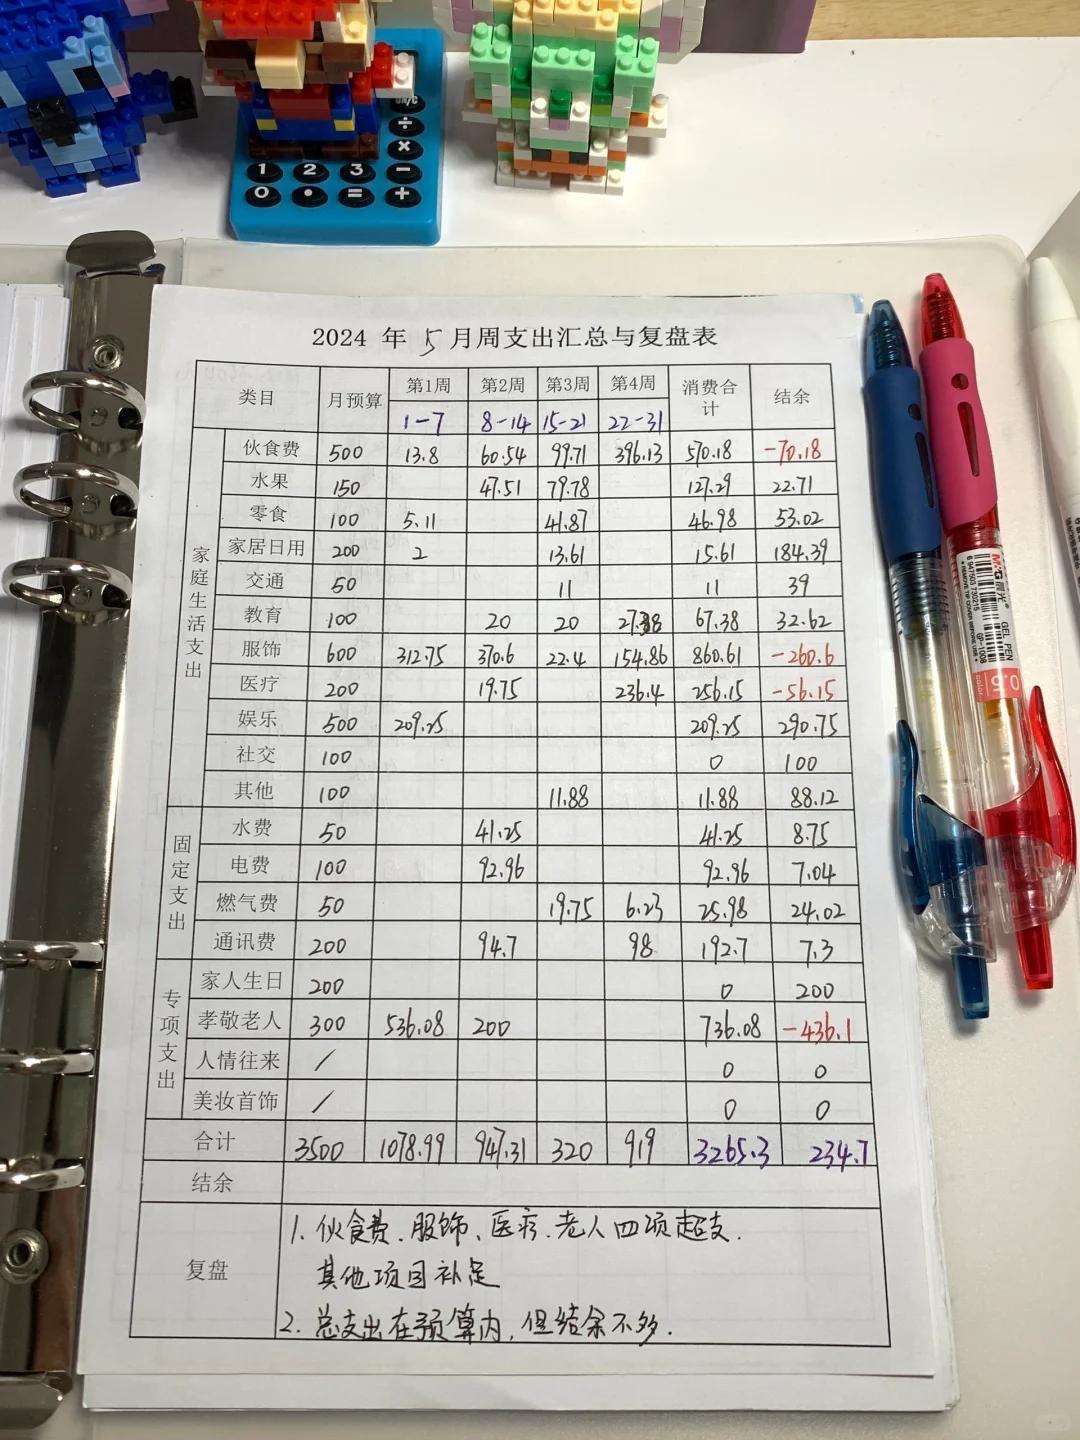 CM/C
÷
×
1 2 3 −
0 • = +
2024 年 5 月周支出汇总与复盘表
类目 月预算 第1周 第2周 第3周 第4周 消费合计 结余
1-7 8-14 15-21 22-31
家庭生活支出
伙食费 500 13.8 60.54 99.71 396.13 570.18 -70.18
水果 150 47.51 79.78 127.29 22.71
零食 100 5.11 41.87 46.98 53.02
家居日用 200 2 13.61 15.61 184.39
交通 50 11 11 39
教育 100 20 20 27.38 67.38 32.62
服饰 600 312.75 370.6 22.4 154.86 860.61 -260.6
医疗 200 19.75 236.4 256.15 -56.15
娱乐 500 209.25 209.25 290.75
社交 100 0 100
其他 100 11.88 11.88 88.12
固定支出
水费 50 41.25 41.25 8.75
电费 100 92.96 92.96 7.04
燃气费 50 19.75 6.23 25.98 24.02
通讯费 200 94.7 98 192.7 7.3
专项支出
家人生日 200 0 200
孝敬老人 300 536.08 200 736.08 -436.1
人情往来 / 0 0
美妆首饰 / 0 0
合计 3500 1078.99 947.31 320 919 3265.3 234.7
结余
复盘
1. 伙食费、服饰、医疗、老人四项超支.
其他项目补足
2. 总支出在预算内, 但结余不多.
M&G 晨光
GEL PEN
GP-1008
6 947503 730215
0.5